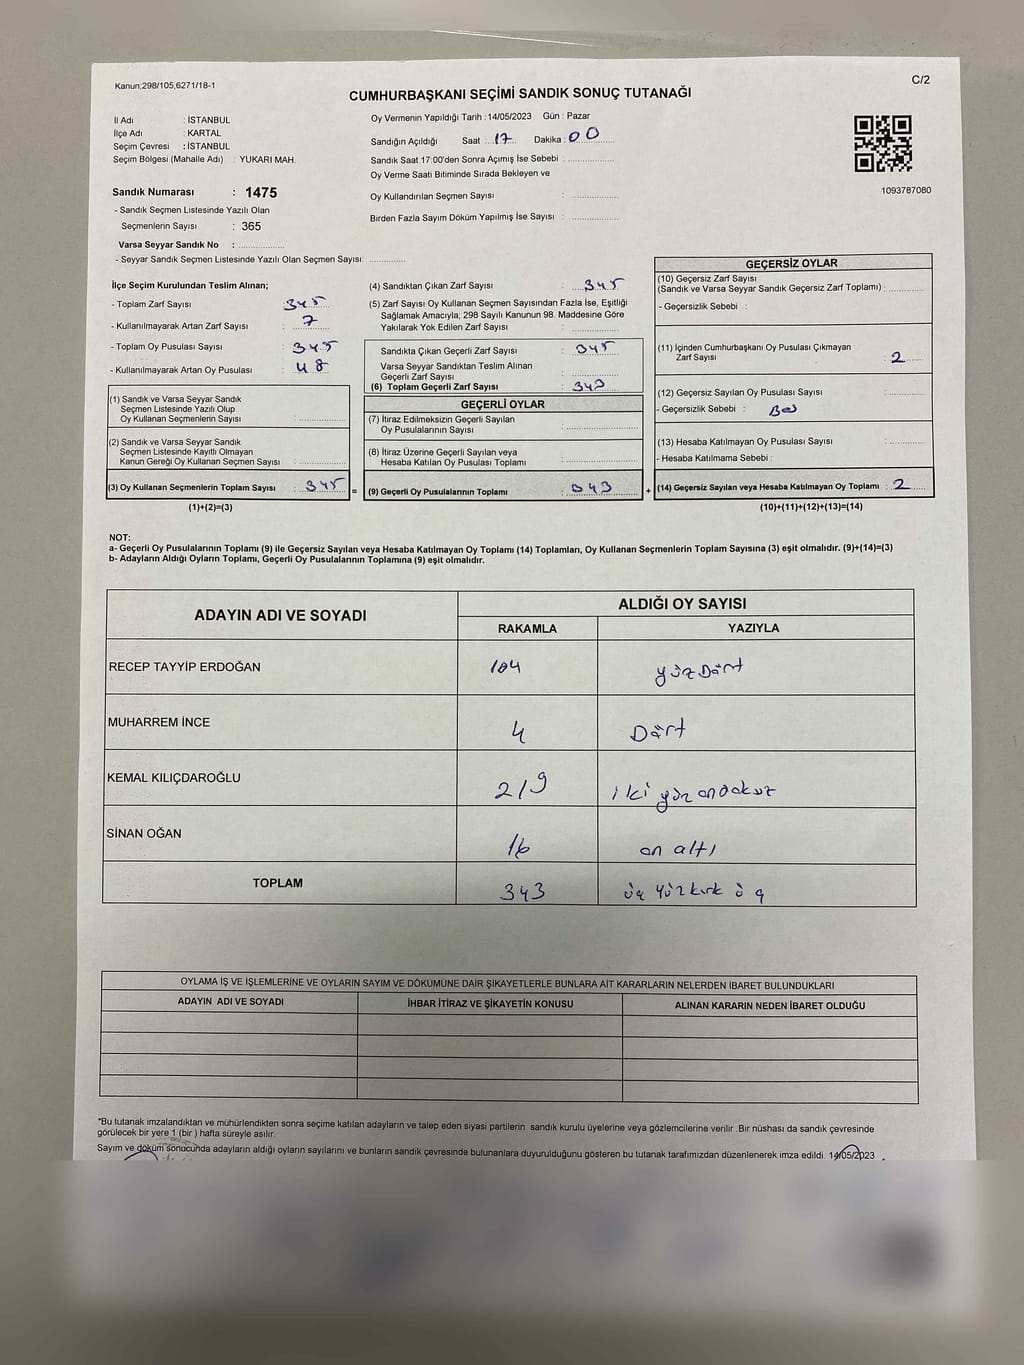 Kanun;298/105,6271/18-1
C/2
CUMHURBAŞKANI SEÇİMİ SANDIK SONUÇ TUTANAĞI
İl Adı : İSTANBUL
İlçe Adı : KARTAL
Seçim Çevresi : İSTANBUL
Seçim Bölgesi (Mahalle Adı) : YUKARI MAH.
Oy Vermenin Yapıldığı Tarih : 14/05/2023 Gün : Pazar
Sandığın Açıldığı Saat : 17 Dakika : 00
Sandık Saat 17:00'den Sonra Açımış İse Sebebi :
Oy Verme Saati Bitiminde Sırada Bekleyen ve
Oy Kullandırılan Seçmen Sayısı :
Birden Fazla Sayım Döküm Yapılmış İse Sayısı :
1093787080
Sandık Numarası : 1475
- Sandık Seçmen Listesinde Yazılı Olan
Seçmenlerin Sayısı : 365
Varsa Seyyar Sandık No :
- Seyyar Sandık Seçmen Listesinde Yazılı Olan Seçmen Sayısı:
İlçe Seçim Kurulundan Teslim Alınan;
- Toplam Zarf Sayısı : 345
- Kullanılmayarak Artan Zarf Sayısı : 7
- Toplam Oy Pusulası Sayısı : 345
- Kullanılmayarak Artan Oy Pusulası : 48
(1) Sandık ve Varsa Seyyar Sandık
Seçmen Listesinde Yazılı Olup
Oy Kullanan Seçmenlerin Sayısı :
(2) Sandık ve Varsa Seyyar Sandık
Seçmen Listesinde Kayıtlı Olmayan
Kanun Gereği Oy Kullanan Seçmen Sayısı :
(3) Oy Kullanan Seçmenlerin Toplam Sayısı : 345
(1)+(2)=(3)
(4) Sandıktan Çıkan Zarf Sayısı : 345
(5) Zarf Sayısı Oy Kullanan Seçmen Sayısından Fazla İse, Eşitliği
Sağlamak Amacıyla, 298 Sayılı Kanunun 98. Maddesine Göre
Yakılarak Yok Edilen Zarf Sayısı :
Sandıkta Çıkan Geçerli Zarf Sayısı : 345
Varsa Seyyar Sandıktan Teslim Alınan
Geçerli Zarf Sayısı :
(6) Toplam Geçerli Zarf Sayısı : 343
GEÇERLİ OYLAR
(7) İtiraz Edilmeksizin Geçerli Sayılan
Oy Pusulalarının Sayısı :
(8) İtiraz Üzerine Geçerli Sayılan veya
Hesaba Katılan Oy Pusulası Toplamı :
= (9) Geçerli Oy Pusulalarının Toplamı : 343
GEÇERSİZ OYLAR
(10) Geçersiz Zarf Sayısı
(Sandık ve Varsa Seyyar Sandık Geçersiz Zarf Toplamı) :
- Geçersizlik Sebebi :
(11) İçinden Cumhurbaşkanı Oy Pusulası Çıkmayan
Zarf Sayısı : 2
(12) Geçersiz Sayılan Oy Pusulası Sayısı :
- Geçersizlik Sebebi : Boş
(13) Hesaba Katılmayan Oy Pusulası Sayısı :
- Hesaba Katılmama Sebebi :
+ (14) Geçersiz Sayılan veya Hesaba Katılmayan Oy Toplamı : 2
(10)+(11)+(12)+(13)=(14)
NOT:
a- Geçerli Oy Pusulalarının Toplamı (9) ile Geçersiz Sayılan veya Hesaba Katılmayan Oy Toplamı (14) Toplamları, Oy Kullanan Seçmenlerin Toplam Sayısına (3) eşit olmalıdır. (9)+(14)=(3)
b- Adayların Aldığı Oyların Toplamı, Geçerli Oy Pusulalarının Toplamına (9) eşit olmalıdır.
ADAYIN ADI VE SOYADI ALDIĞI OY SAYISI
RAKAMLA YAZIYLA
RECEP TAYYİP ERDOĞAN 104 yüzDört
MUHARREM İNCE 4 Dört
KEMAL KILIÇDAROĞLU 219 iki yüz ondokuz
SİNAN OĞAN 16 on altı
TOPLAM 343 üç yüz kırk üç
OYLAMA İŞ VE İŞLEMLERİNE VE OYLARIN SAYIM VE DÖKÜMÜNE DAİR ŞİKAYETLERLE BUNLARA AİT KARARLARIN NELERDEN İBARET BULUNDUKLARI
ADAYIN ADI VE SOYADI İHBAR İTİRAZ VE ŞİKAYETİN KONUSU ALINAN KARARIN NEDEN İBARET OLDUĞU
*Bu tutanak imzalandıktan ve mühürlendikten sonra seçime katılan adayların ve talep eden siyasi partilerin sandık kurulu üyelerine veya gözlemcilerine verilir. Bir nüshası da sandık çevresinde
görülecek bir yere 1 (bir ) hafta süreyle asılır.
Sayım ve döküm sonucunda adayların aldığı oyların sayılarını ve bunların sandık çevresinde bulunanlara duyurulduğunu gösteren bu tutanak tarafımızdan düzenlenerek imza edildi. 14/05/2023